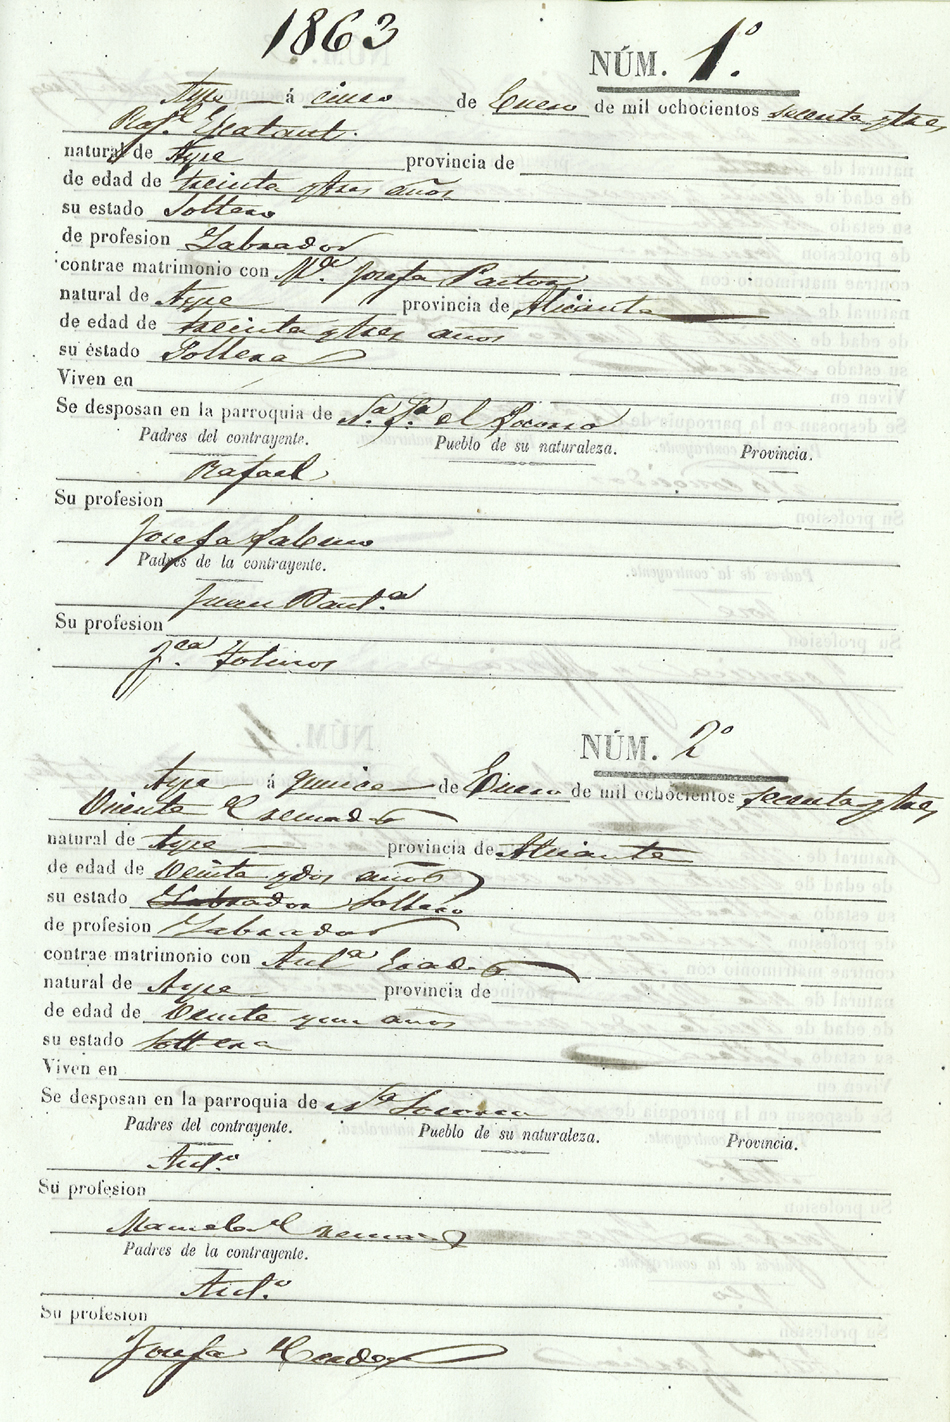 1863
NÚM. 1º
Aspe á cinco de Enero de mil ochocientos secenta y tres
Rafl.
natural de Aspe provincia de
de edad de treinta y tres años
su estado Soltero
de profesion Labrador
contrae matrimonio con Mª. Josefa Pastor
natural de Aspe provincia de Alicante
de edad de treinta y tres años
su estado Soltera
Viven en
Se desposan en la parroquia de Nª. Sª. el Socorro
Padres del contrayente. Pueblo de su naturaleza. Provincia.
Rafael
Su profesion
Josefa
Padres de la contrayente.
Juan
Su profesion
NÚM. 2º
Aspe á quince de Enero de mil ochocientos secenta y tres
Vicente
natural de Aspe provincia de Alicante
de edad de Veinte y dos años
su estado Labrador Soltero
de profesion Labrador
contrae matrimonio con Antª
natural de Aspe provincia de
de edad de Veinte y un años
su estado Soltera
Viven en
Se desposan en la parroquia de Nª Socorro
Padres del contrayente. Pueblo de su naturaleza. Provincia.
Antº
Su profesion
Manuela
Padres de la contrayente.
Antº
Su profesion
Josefa